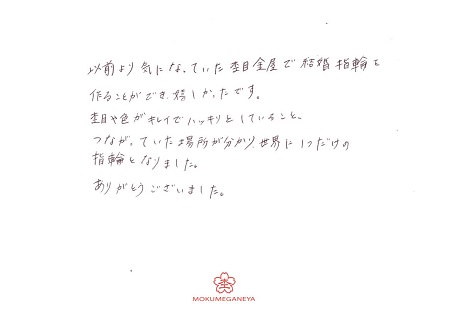 以前より気になっていた杢目金屋で結婚指輪を
作ることができ、嬉しかったです。
杢目や色がキレイでハッキリとしていること、
つながっていた場所が分かり、世界に1つだけの
指輪となりました。
ありがとうございました。
杢
MOKUMEGANEYA